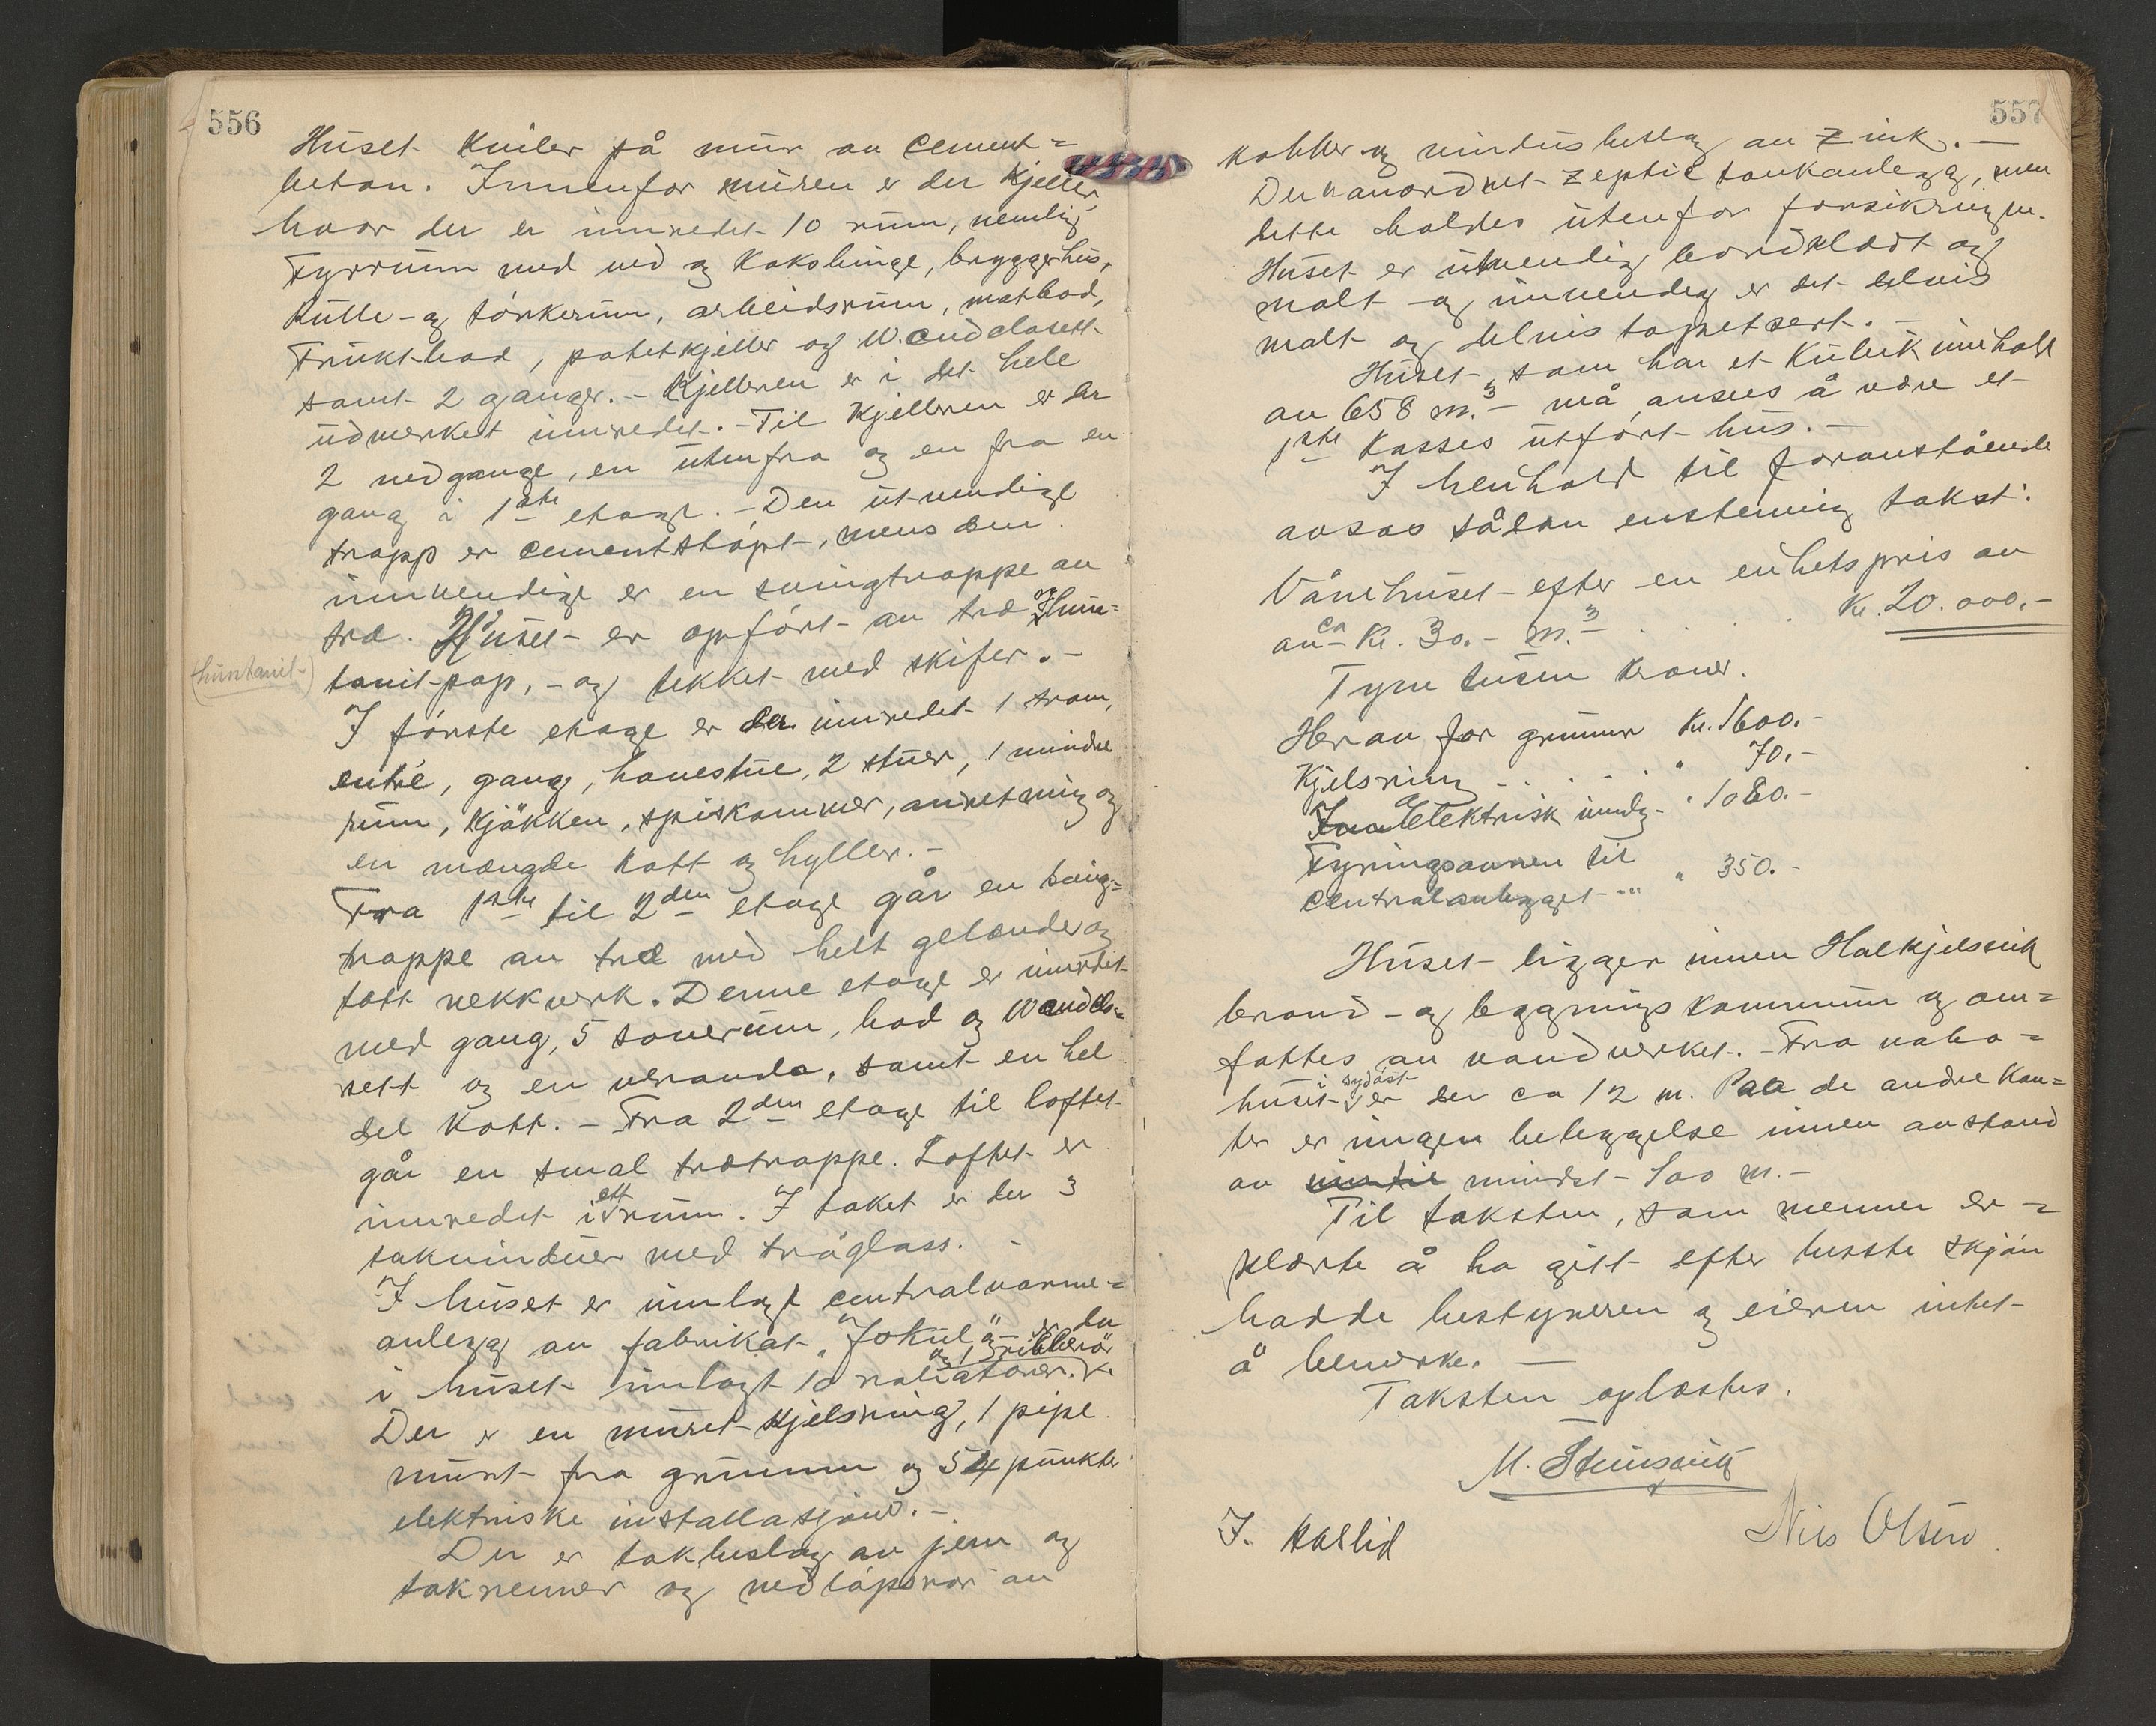 556
Huset kviler på mur av cement=
beton. Innenfor muren er der kjeller,
hvor der er innredet 10 rum, nemlig
Fyrrum med ved og koksbinge, bryggerhus,
Rulle- og törkerum, arbeidsrum, matbod,
Fruktbod, potetkjeller og W.andclosett
samt 2 ganger. - Kjelleren er i det hele
udmerket innredet. - Til kjelleren er der
2 nedgange, en utenfra og en fra en
gang i 1ste etage. - Den utvendige
trapp er cementstöpt, mens den
innvendige er en svingtrappe av
træ. Huset er opfört av træ og hun=
tonit-pap, - og tekket med skifer. -
(huntonit-)
I förste etage er der innredet 1 trom,
entré, gang, havestue, 2 stuer, 1 mindre
rum, kjökken, spiskammer, anretning og
en mængde kott og hyller. -
Fra 1ste til 2den etage går en sving=
trappe av træ med helt gelænder og
tott rekkverk. Denne etage er innredet
med gang, 5 soverum, bad og Wandclo=
sett og en veranda, samt en hel
del kott. - Fra 2den etage til loftet
går en smal trætrappe. Loftet er
innredet i ett rum. I taket er der 3
takvinduer med tråglass. -
I huset er innlagt centralvarme=
anlegg av fabrikat "Jøkul" og er der
i huset innlagt 10 radiatorer og 1 ribberör.
Der er en muret kjelsring, 1 pipe
muret fra grunnen og 54 punkter
elektriske installasjon. -
Der er takbeslag av jern og
takrenner og nedlöpsrör av
557
kobber og vindusbeslag av Zink. -
Der er anordnet Zeptic tankanlegg, men
dette holdes utenfor forsikringen.
Huset er utvendig bordklædt og
malt og innvendig er det delvis
malt og delvis tapetsert. -
Huset, som har et kubik innhold
av 658 m.3 - må ansees å være et
1ste klasses utfört hus. -
I henhold til foranstående
avsaes sålydende enstemmig takst:
Vånehuset efter en enhetspris av
av ca Kr. 30.- m.3 . . . . . Kr. 20.000.-
Tyve tusen kroner.
Herav for grunnmur Kr. 1600.-
Kjelsring . . . . . " 70.-
Elektrisk innlg. " 1080.-
Fyringsovnen til
centralanlegget - " 350.-
Huset ligger innen Halkjelsvik
brand- og bygningskommune og om=
fattes av vandverket. - Fra nabo=
huset i sydöst er der ca 12 m. Paa de andre kan=
ter er ingen bebyggelse innen avstand
av mindst 100 m. -
Til taksten, som mennene er=
klærte å ha gitt efter beste skjön
hadde bestyreren og eieren intet
å bemerke. -
Taksten oplæstes.
M. Steinsvik
J. Aaslid
Nils Olsen